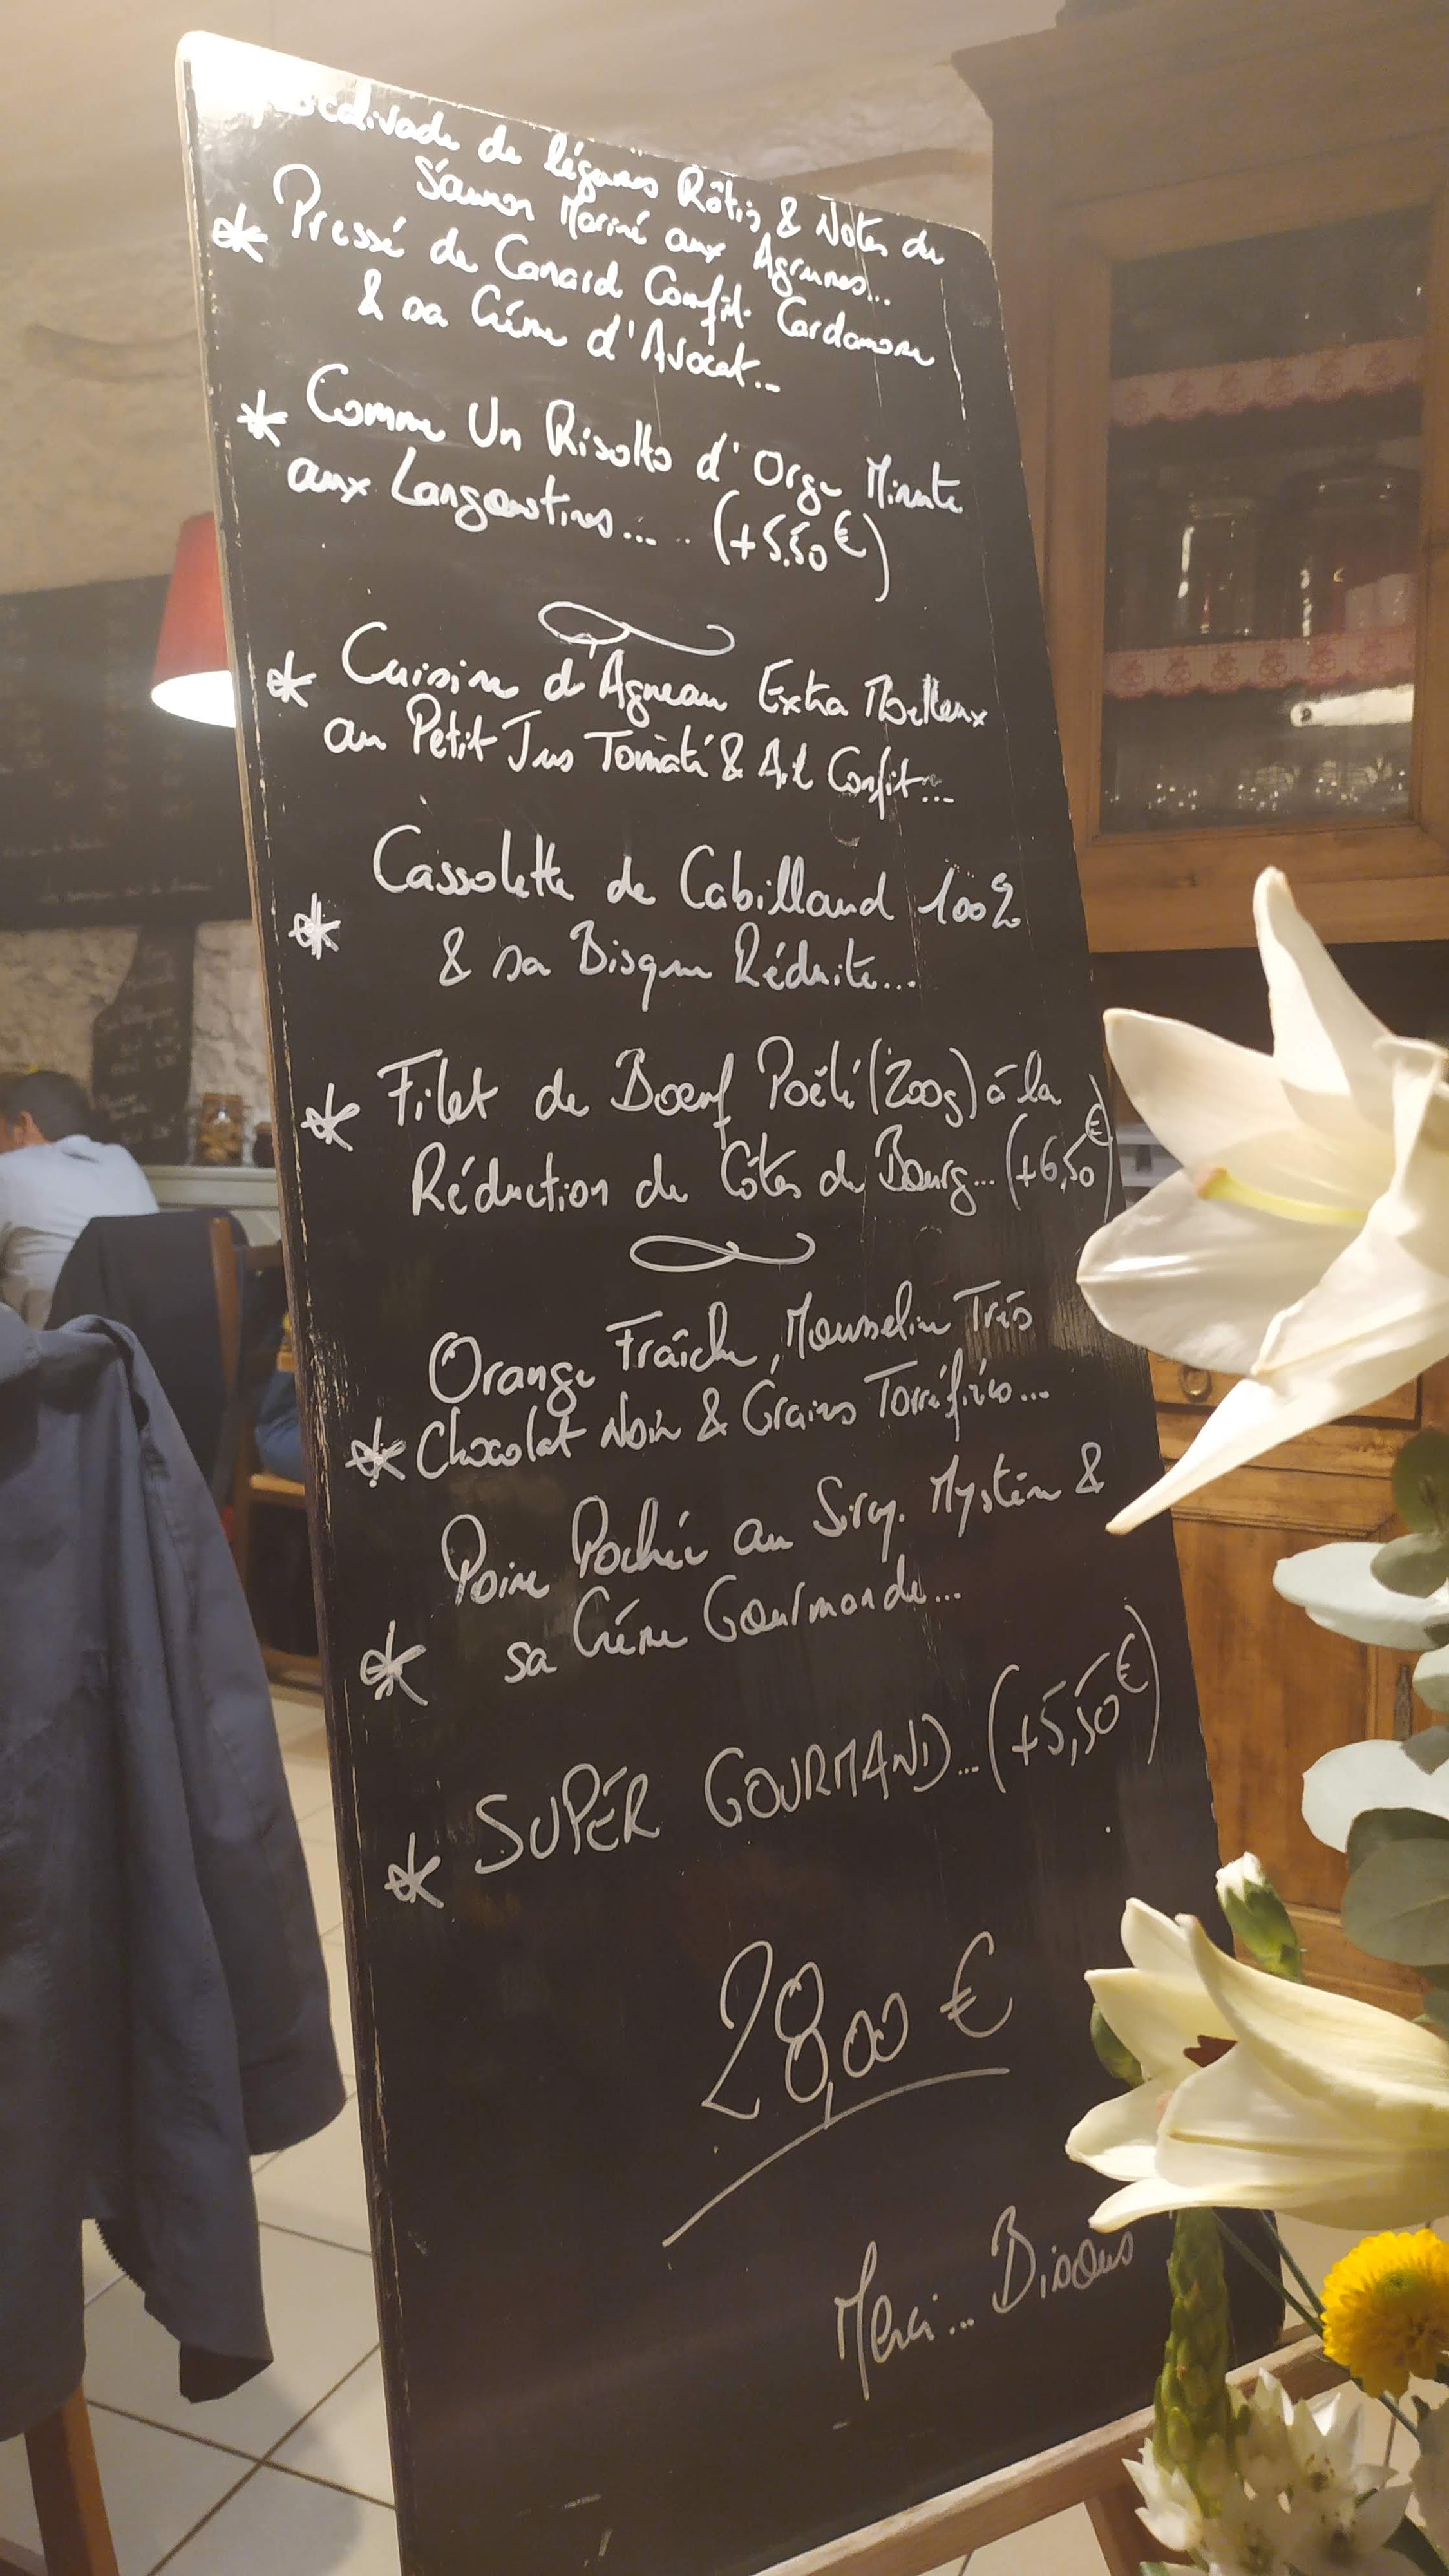 de légumes Rôtis & Notes de
Saumon Mariné aux Agrumes...
* Pressé de Canard Confit. Cardamome
& sa Crème d'Avocat...
* Comme Un Risotto d'Orge Minute
aux Langoustines..... (+5.50€)
* Cuisine d'Agneau Extra Moelleux
au Petit Jus Tomaté & Ail Confit...
Cassolette de Cabillaud 100%
* & sa Bisque Réduite...
* Filet de Boeuf Poêlé (200g) à la
Réduction de Côtes de Bourg... (+6,50€)
Orange Fraîche, Mousseline Très
* Chocolat Noir & Grains Torréfiés...
Poire Pochée au Sirop. Mystère &
* sa Crème Gourmande...
* SUPÉR GOURMAND... (+5,50€)
28,00 €
Merci... Bisous